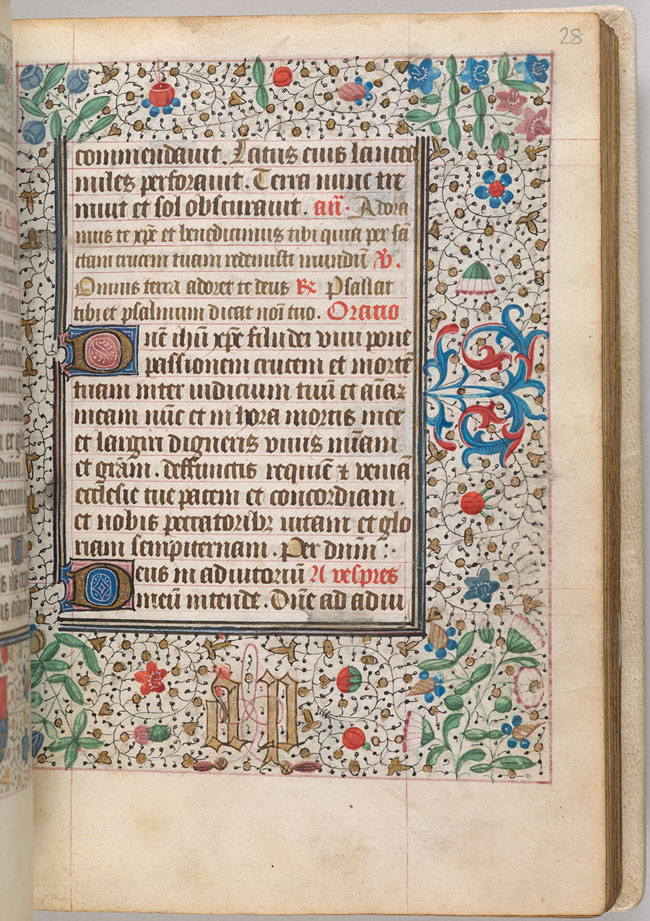 28
commendauit. Latus eius lancea
miles perforauit. Terra nunc tre
muit et sol obscurauit. añ. Adora
mus te xp̄e et benedicimus tibi quia per sā
ctam crucem tuam redemisti mundū ꝟ.
Omnis terra adoret te deus ℞ Psallat
tibi et psalmum dicat noī tuo. Oratio
Dñe ihū xp̄e fili dei viui pone
passionem crucem et mortē
tuam inter iudicium tuū et aīaꝫ
meam nūc et in hora mortis mee
et largiri digneris viuis mīam
et grām. deffunctis requiē ⁊ veniā
ecclesie tue pacem et concordiam.
et nobis peccatoribꝫ vitam et glo
riam sempiternam. Per dñm :
Deus in adiutoriū A vespres
meū intende. Dñe ad adiu
a p